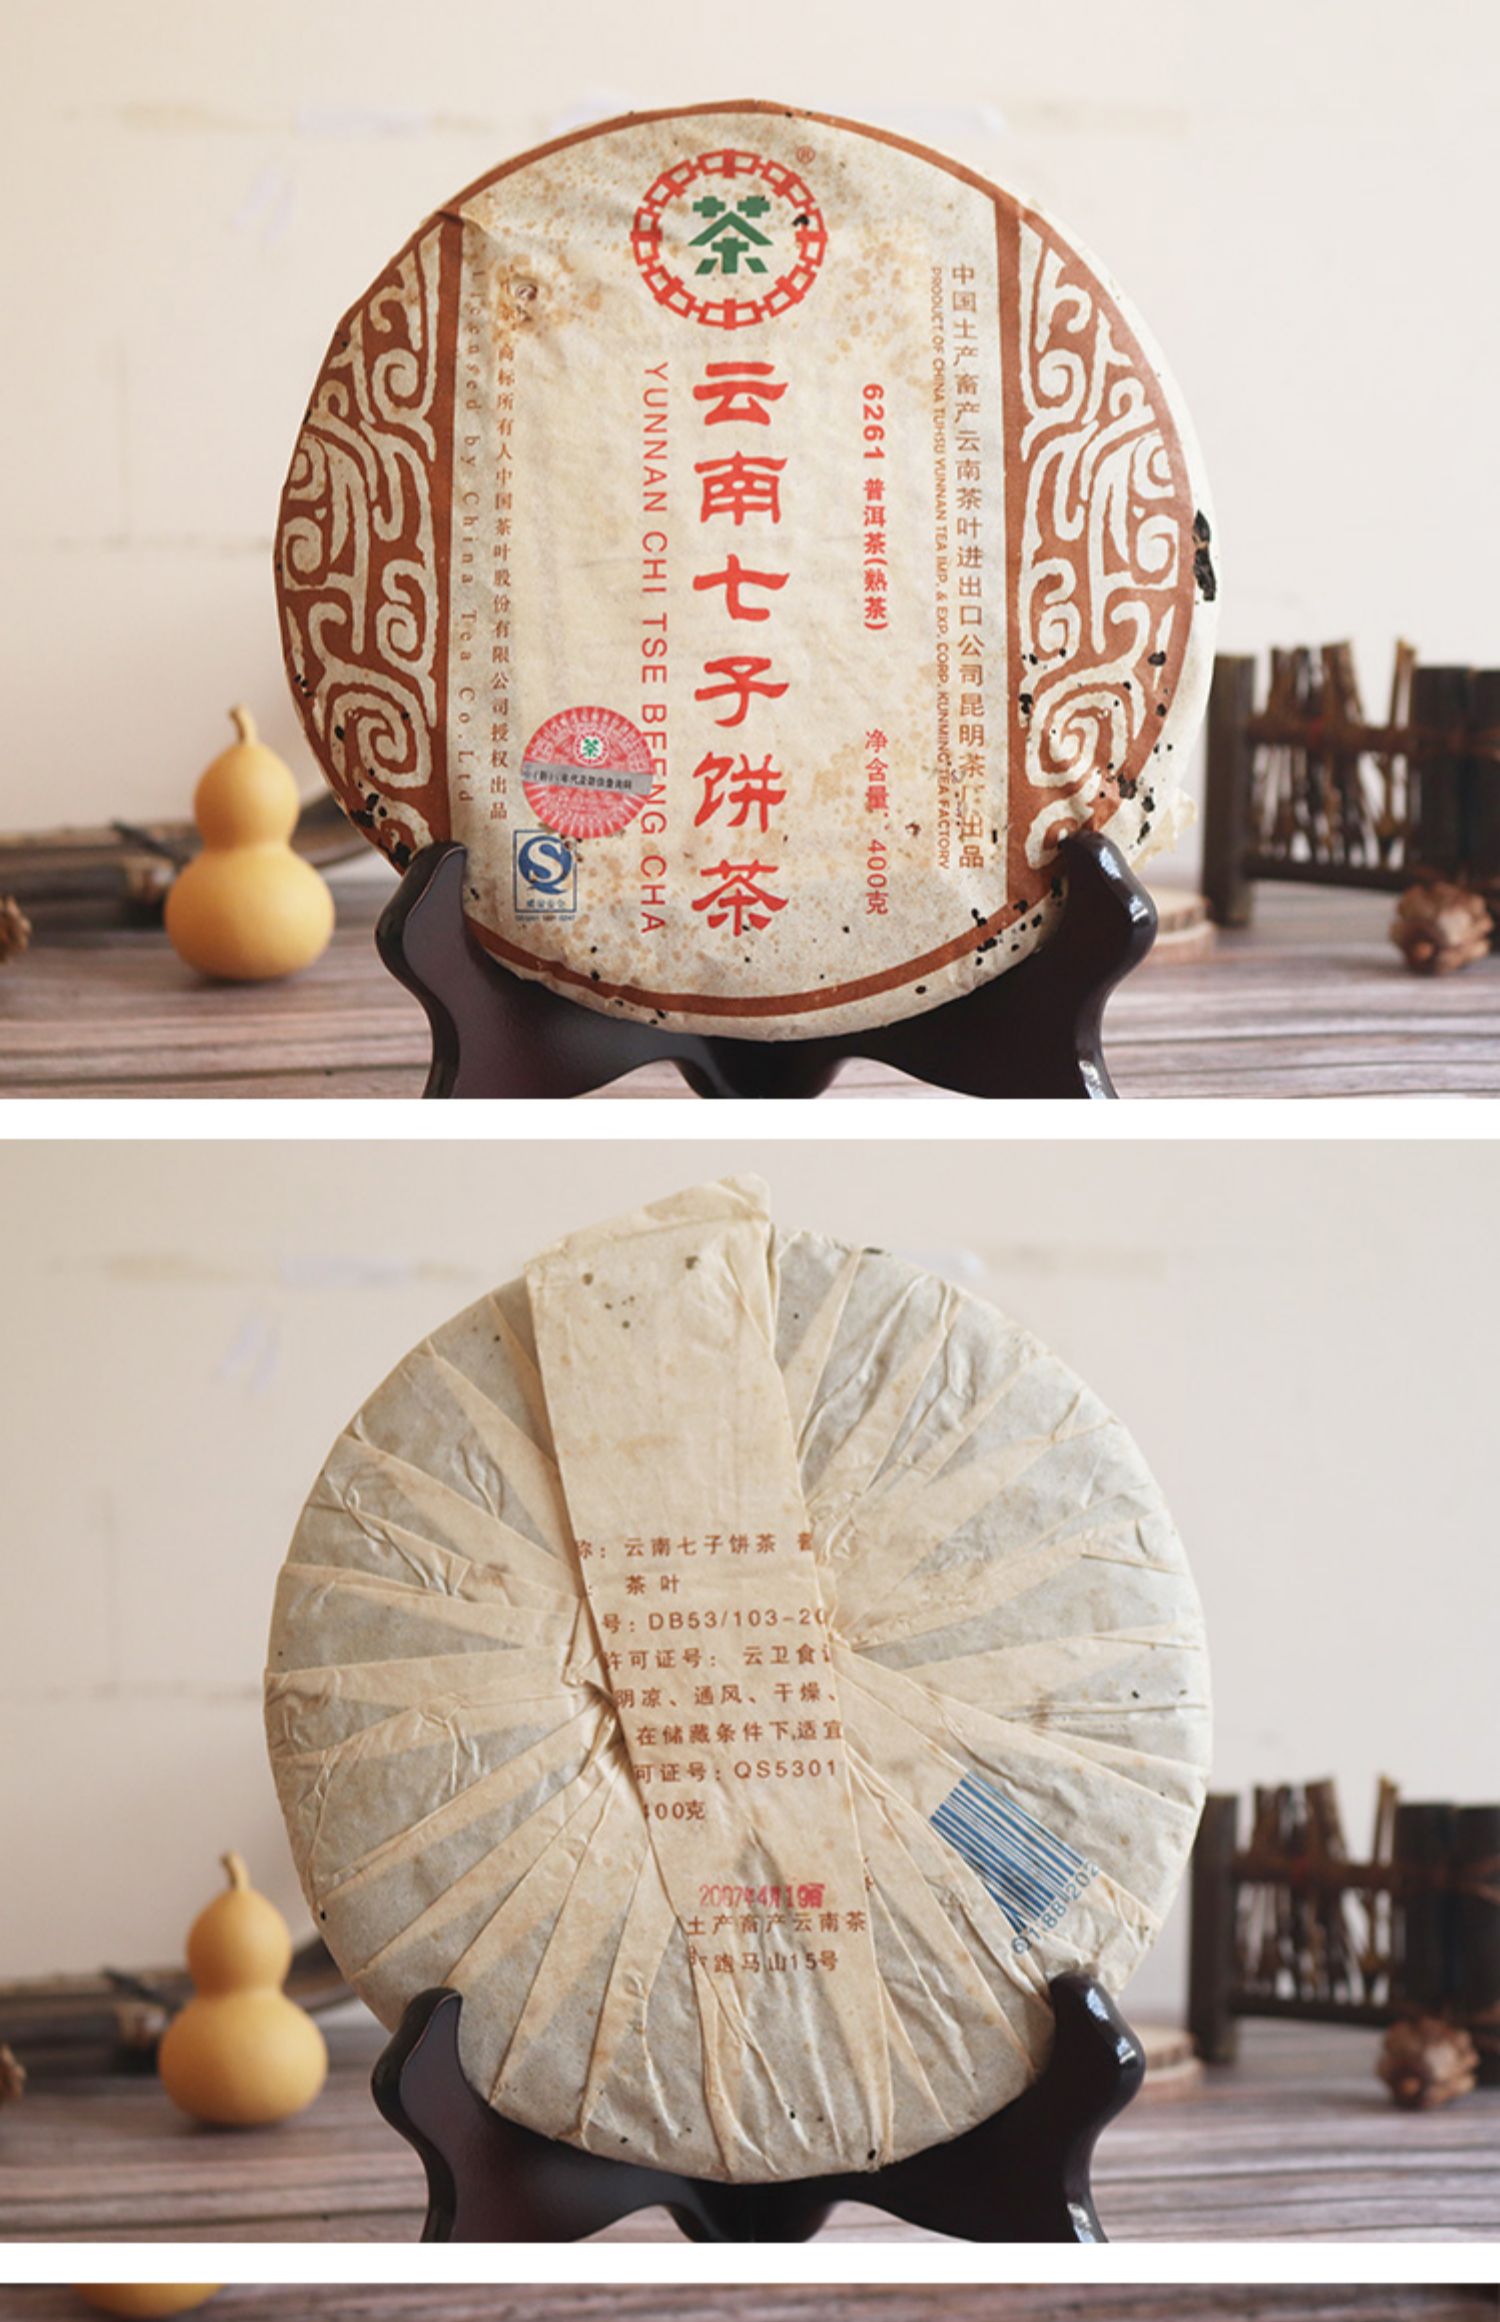 茶
®
云南七子饼茶
YUNNAN CHI TSE BEENG CHA
6261 普洱茶(熟茶)
净含量: 400克
中国土产畜产云南茶叶进出口公司昆明茶厂出品
PRODUCT OF CHINA TUHSU YUNNAN TEA IMP. & EXP. CORP. KUNMING TEA FACTORY
商标所有人中国茶叶股份有限公司授权出品
Licensed by China Tea Co.Ltd
茶
质量安全
称: 云南七子饼茶 普
: 茶叶
号: DB53/103-20
许可证号: 云卫食
阴凉、通风、干燥、
在储藏条件下,适宜
可证号: QS5301
400克
2007年4月19
土产畜产云南茶
跑马山15号